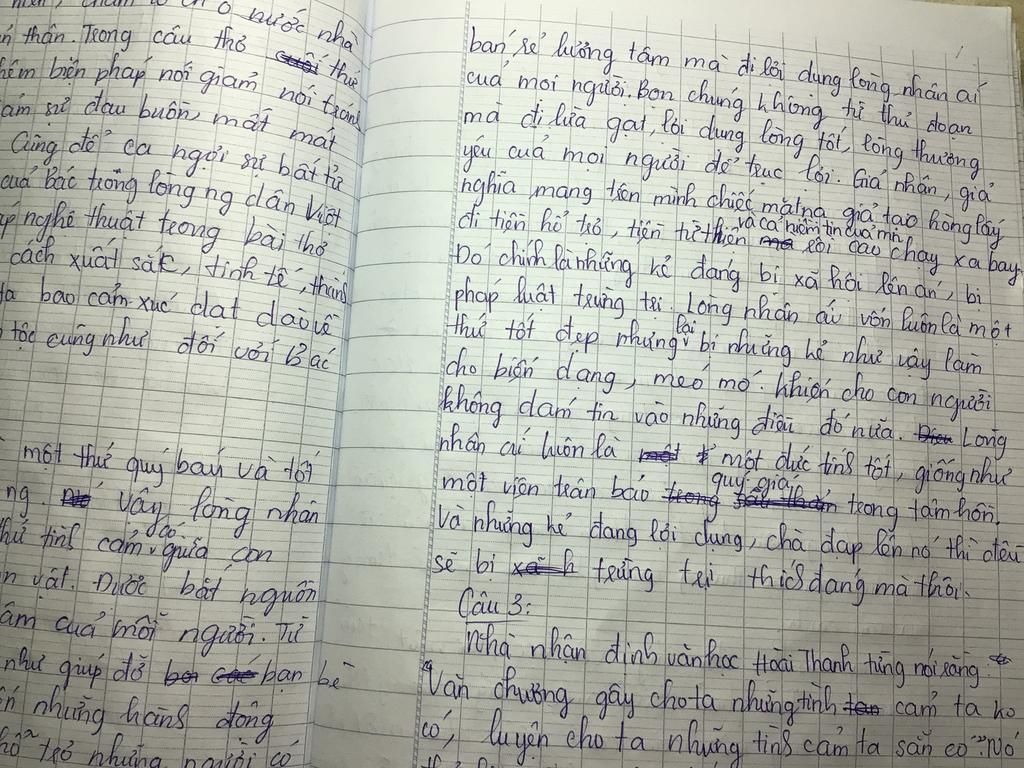 nước nhà
thân. Trong câu thơ thứ
biện pháp nói giảm nói tránh
sự đau buồn, mất mát
Cũng để ca ngợi sự bất tử
của Bác trong lòng ng dân Việt
nghệ thuật trong bài thơ
cách xuất sắc, tinh tế,
bao cảm xúc dạt dào về
tộc cũng như đối với Bác
một thứ quý báu và tốt
vậy, lòng nhân
thứ tình cảm giữa con
vật. Được bắt nguồn
của mỗi người. Từ
như giúp đỡ bạn bè
những hành động
trợ những người có
bán rẻ lương tâm mà đi lợi dụng lòng nhân ái
của mọi người. Bọn chúng không từ thủ đoạn
mà đi lừa gạt, lợi dụng lòng tốt, lòng thương
yêu của mọi người để trục lợi. Giả nhân, giả
nghĩa mang tên mình chiếc mặt nạ giả tạo hòng lấy
đi tiền hỗ trợ, tiền từ thiện và cả niềm tin của mn rồi cao chạy xa bay.
Đó chính là những kẻ đáng bị xã hội lên án, bị
pháp luật trừng trị. Lòng nhân ái vốn luôn là một
thứ tốt đẹp nhưng lại bị những kẻ như vậy làm
cho biến dạng, méo mó. Khiến cho con người
không dám tin vào những điều đó nữa. Lòng
nhân ái luôn là một đức tính tốt, giống như
một viên trân báo quý giá trong tâm hồn.
Và những kẻ đang lợi dụng, chà đạp lên nó thì đều
sẽ bị trừng trị thích đáng mà thôi.
Câu 3:
Nhà nhận định văn học Hoài Thanh từng nói rằng
"Văn chương gây cho ta những tình cảm ta ko
có, luyện cho ta những tình cảm ta sẵn có". Nó